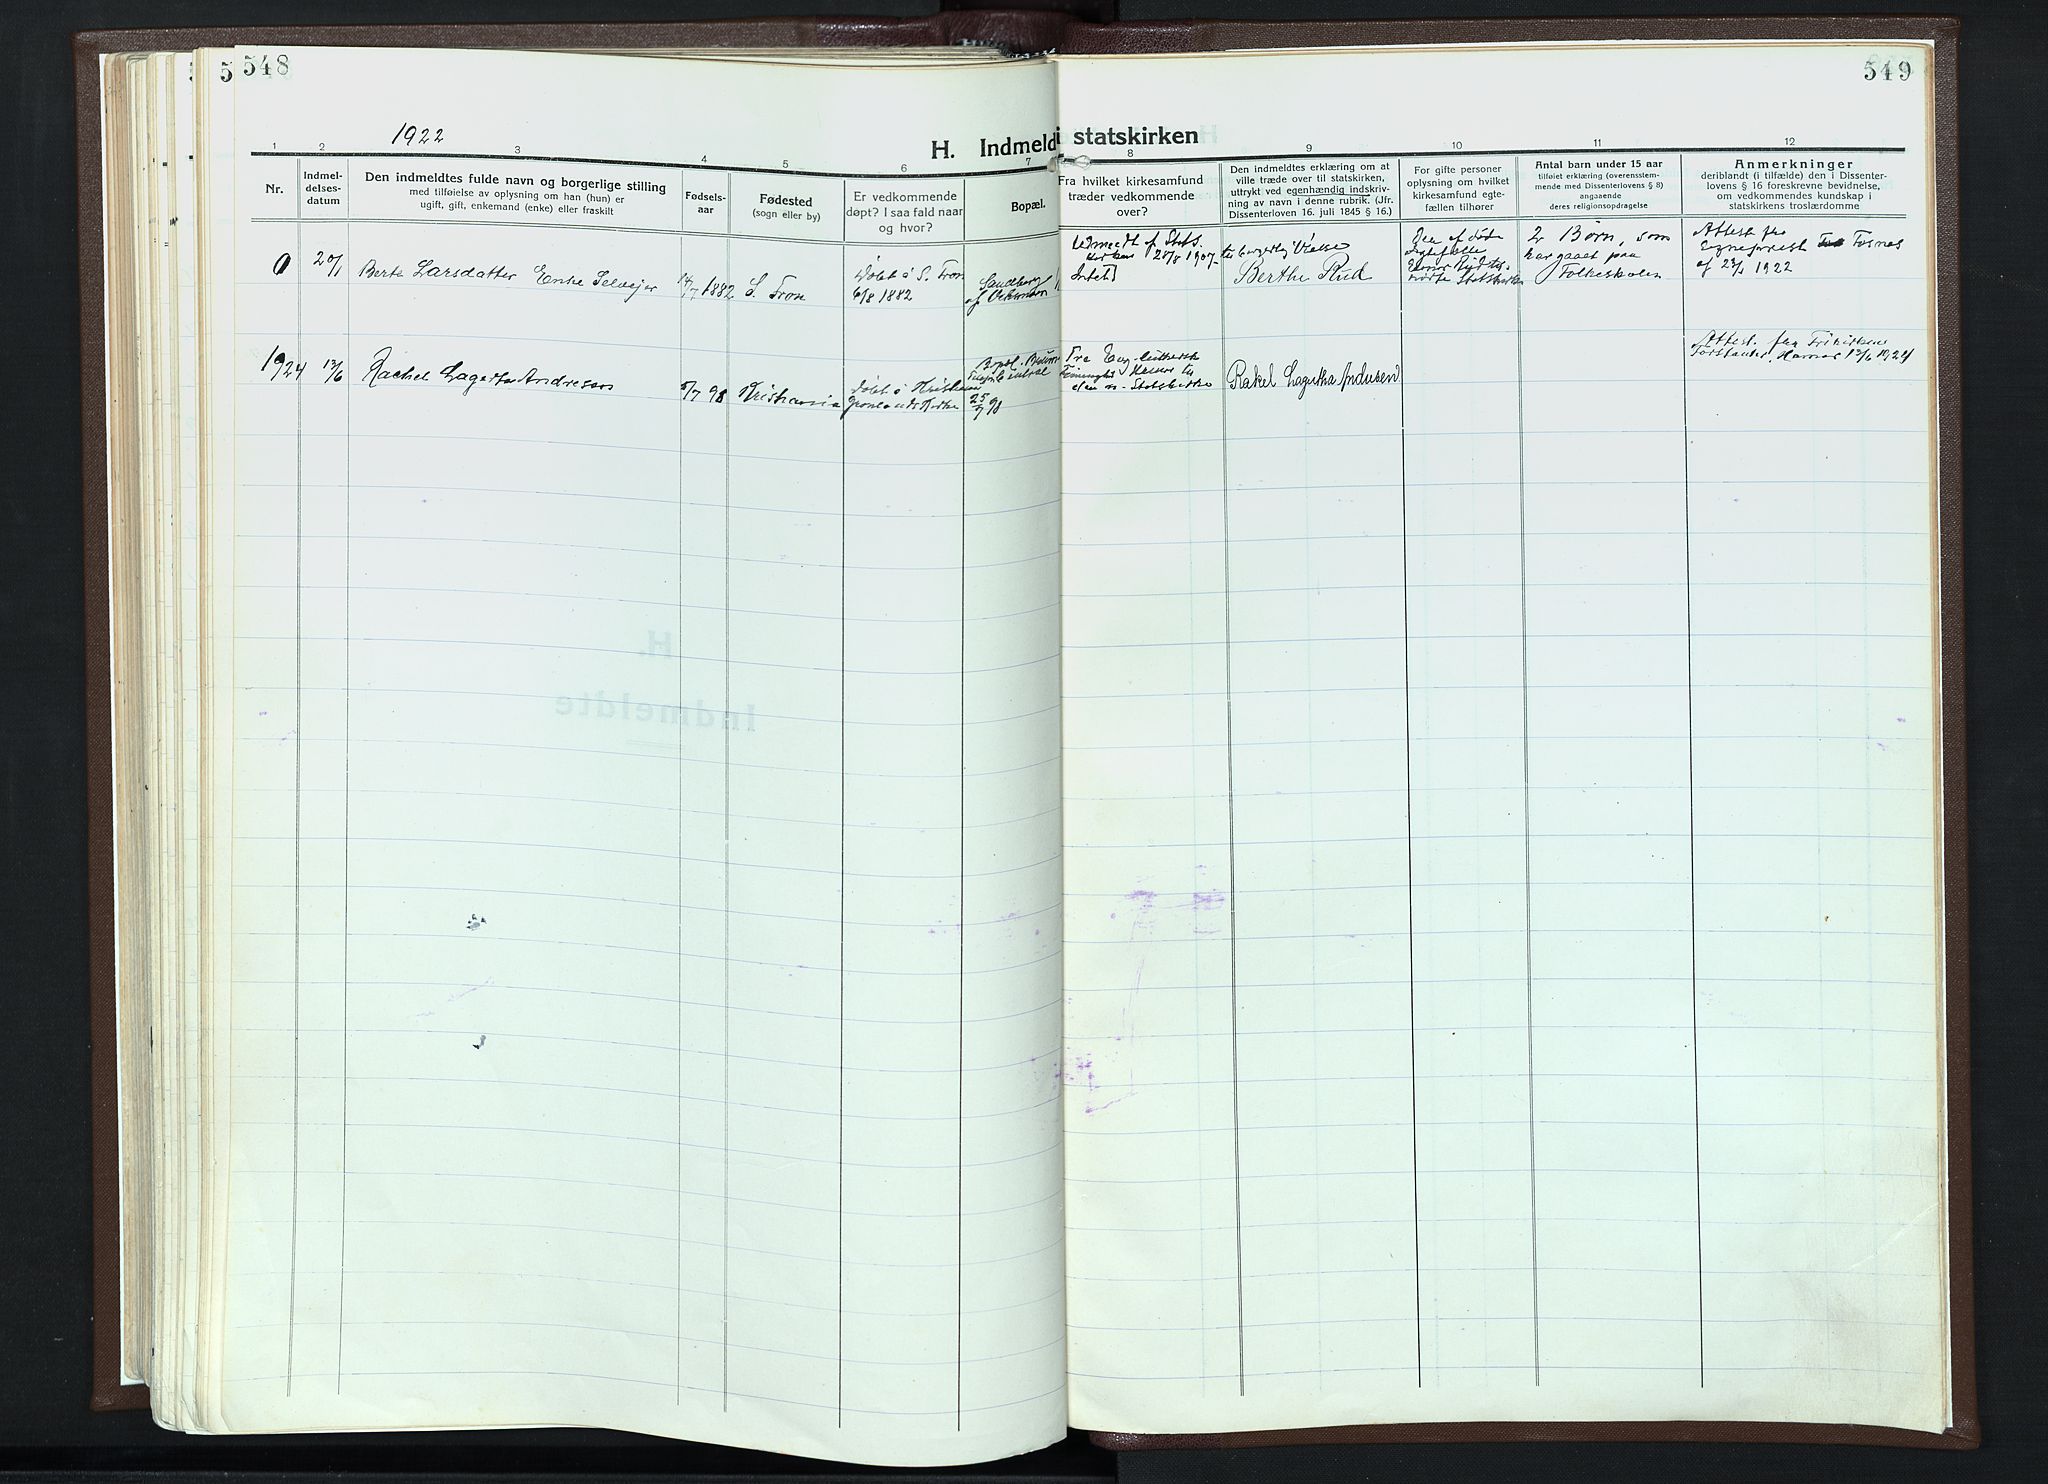 548
5
549
1922
H. Indmeld i statskirken
1 2 3 4 5 6 7 8 9 10 11 12
Nr.
Indmel-
delses-
datum
Den indmeldtes fulde navn og borgerlige stilling
med tilføielse av oplysning om han (hun) er
ugift, gift, enkemand (enke) eller fraskilt
Fødsels-
aar
Fødested
(sogn eller by)
Er vedkommende
døpt? I saa fald naar
og hvor?
Bopæl.
Fra hvilket kirkesamfund
træder vedkommende
over?
Den indmeldtes erklæring om at
ville træde over til statskirken,
uttrykt ved egenhændig indskriv-
ning av navn i denne rubrik. (Jfr.
Dissenterloven 16. juli 1845 § 16.)
For gifte personer
oplysning om hvilket
kirkesamfund egte-
fællen tilhører
Antal barn under 15 aar
tilføiet erklæring (overensstem-
mende med Dissenterlovens § 8)
angaaende
deres religionsopdragelse
Anmerkninger
deriblandt (i tilfælde) den i Dissenter-
lovens § 16 foreskrevne bevidnelse,
om vedkommendes kundskap i
statskirkens troslærdomme
20/1
Berte Larsdatter Enke
14/7 1882
S. Fron
Døbt i S. Fron
6/8 1882
Sandberg
Udmeldt af Stats
kirken 20/8 1907
Intet
borgerlig Vielse
Berthe Rud
Den af døde
Ægtefælle
Statskirken
2 Børn, som
har gaaet paa
Folkeskolen
Attest fra
Sogneprest Fosnes
af 23/1 1922
1924
13/6
Rachel Lagertha Andresen
5/7 98
Kristiania
Døbt i Kristiania
Grønlands Kirke
25/9 98
Fra Evg. luthersk
den n. Statskirke
Rakel Lagertha Andresen
Attest fra Frikirkens
Forstander, Hamar 13/6 1924